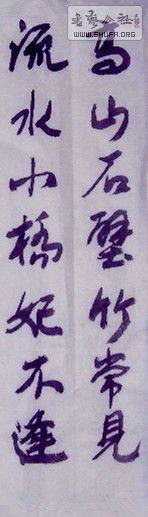 高山石壁竹常見
流水小橋妃不逢
書藝公社
WWW.SHUFA.ORG